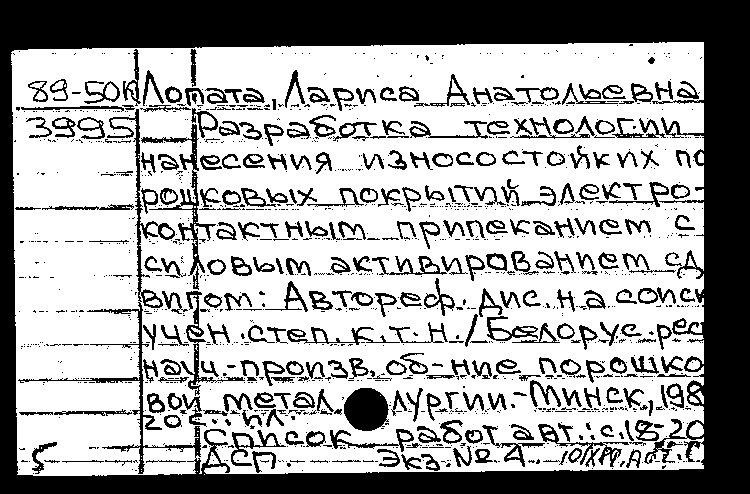 89-50к Лопата, Лариса Анатольевна
3995 Разработка технологии
нанесения износостойких по
рошковых покрытий электро-
контактным припеканием с
силовым активированием сд
вигом: Автореф. дис. на соиск
учен. степ. к.т.н. / Белорус. рес
науч.-произв. об-ние порошко
вой метал лургии.-Минск, 198
20с.: ил.
Список работ авт.: с. 18-20
5 ДСП. Экз. № 4.